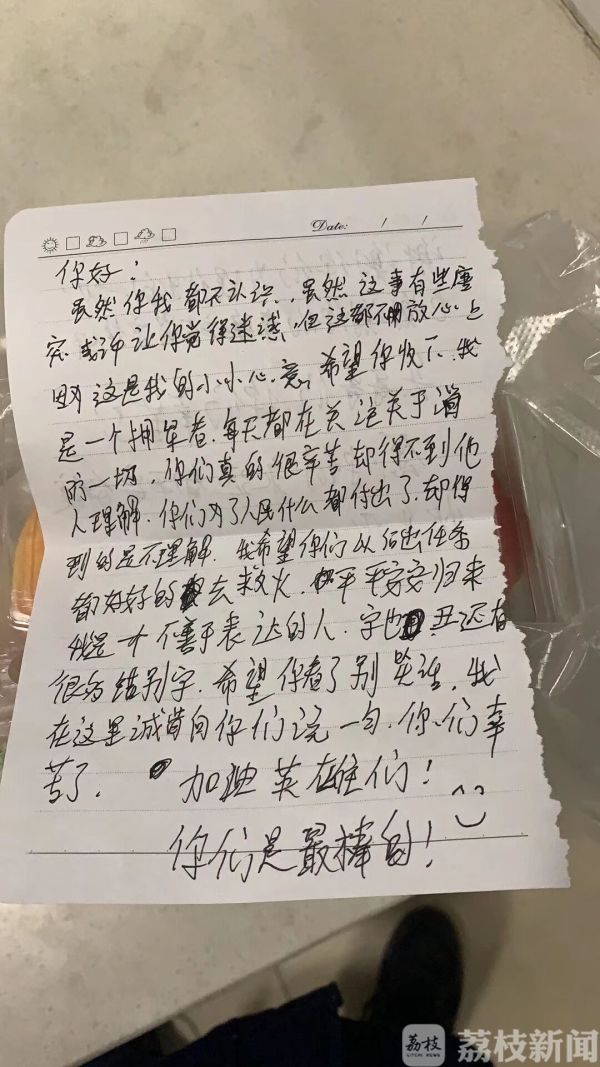 Date: / /
你好！
虽然你我都不认识，虽然这事有些唐
突 或许让你觉得迷惑，但这都不用放心上
因为这是我的小小心意，希望你收下，我
是一个拥军者，每天都在关注关于消
防一切，你们真的很辛苦却得不到他
人理解，你们为了人民什么都付出了，却得
到的是不理解，我希望你们以后出任务
都好好的去救火，平平安安归来
我是一个不善于表达的人，字也丑还有
很多错别字，希望你看了别笑话，我
在这里诚肯向你们说一句，你们辛
苦了，
加油英雄们！
你们是最棒的！
荔枝
LITCHI NEWS
荔枝新闻